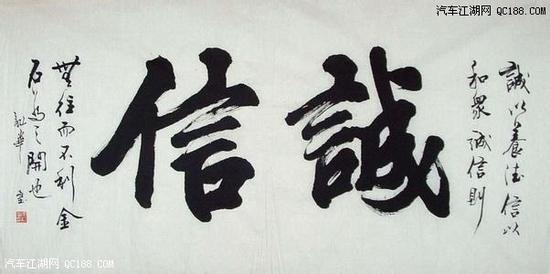 汽车江湖网 QC188.COM
誠以養德信以
和衆誠信則
誠信
無往而不利金
石為之開也
汽车江湖网 QC188.COM